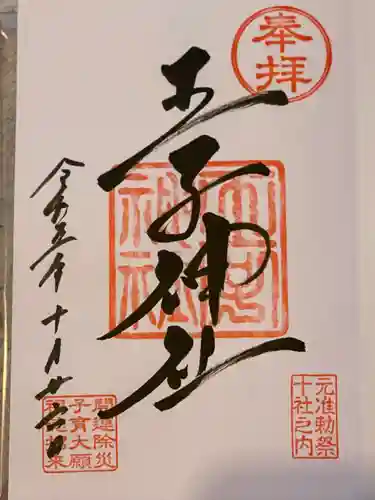 奉拝
王子神社
王子
神社
令和五年十月廿日
元准勅祭
十社之内
開運除災
子育大願